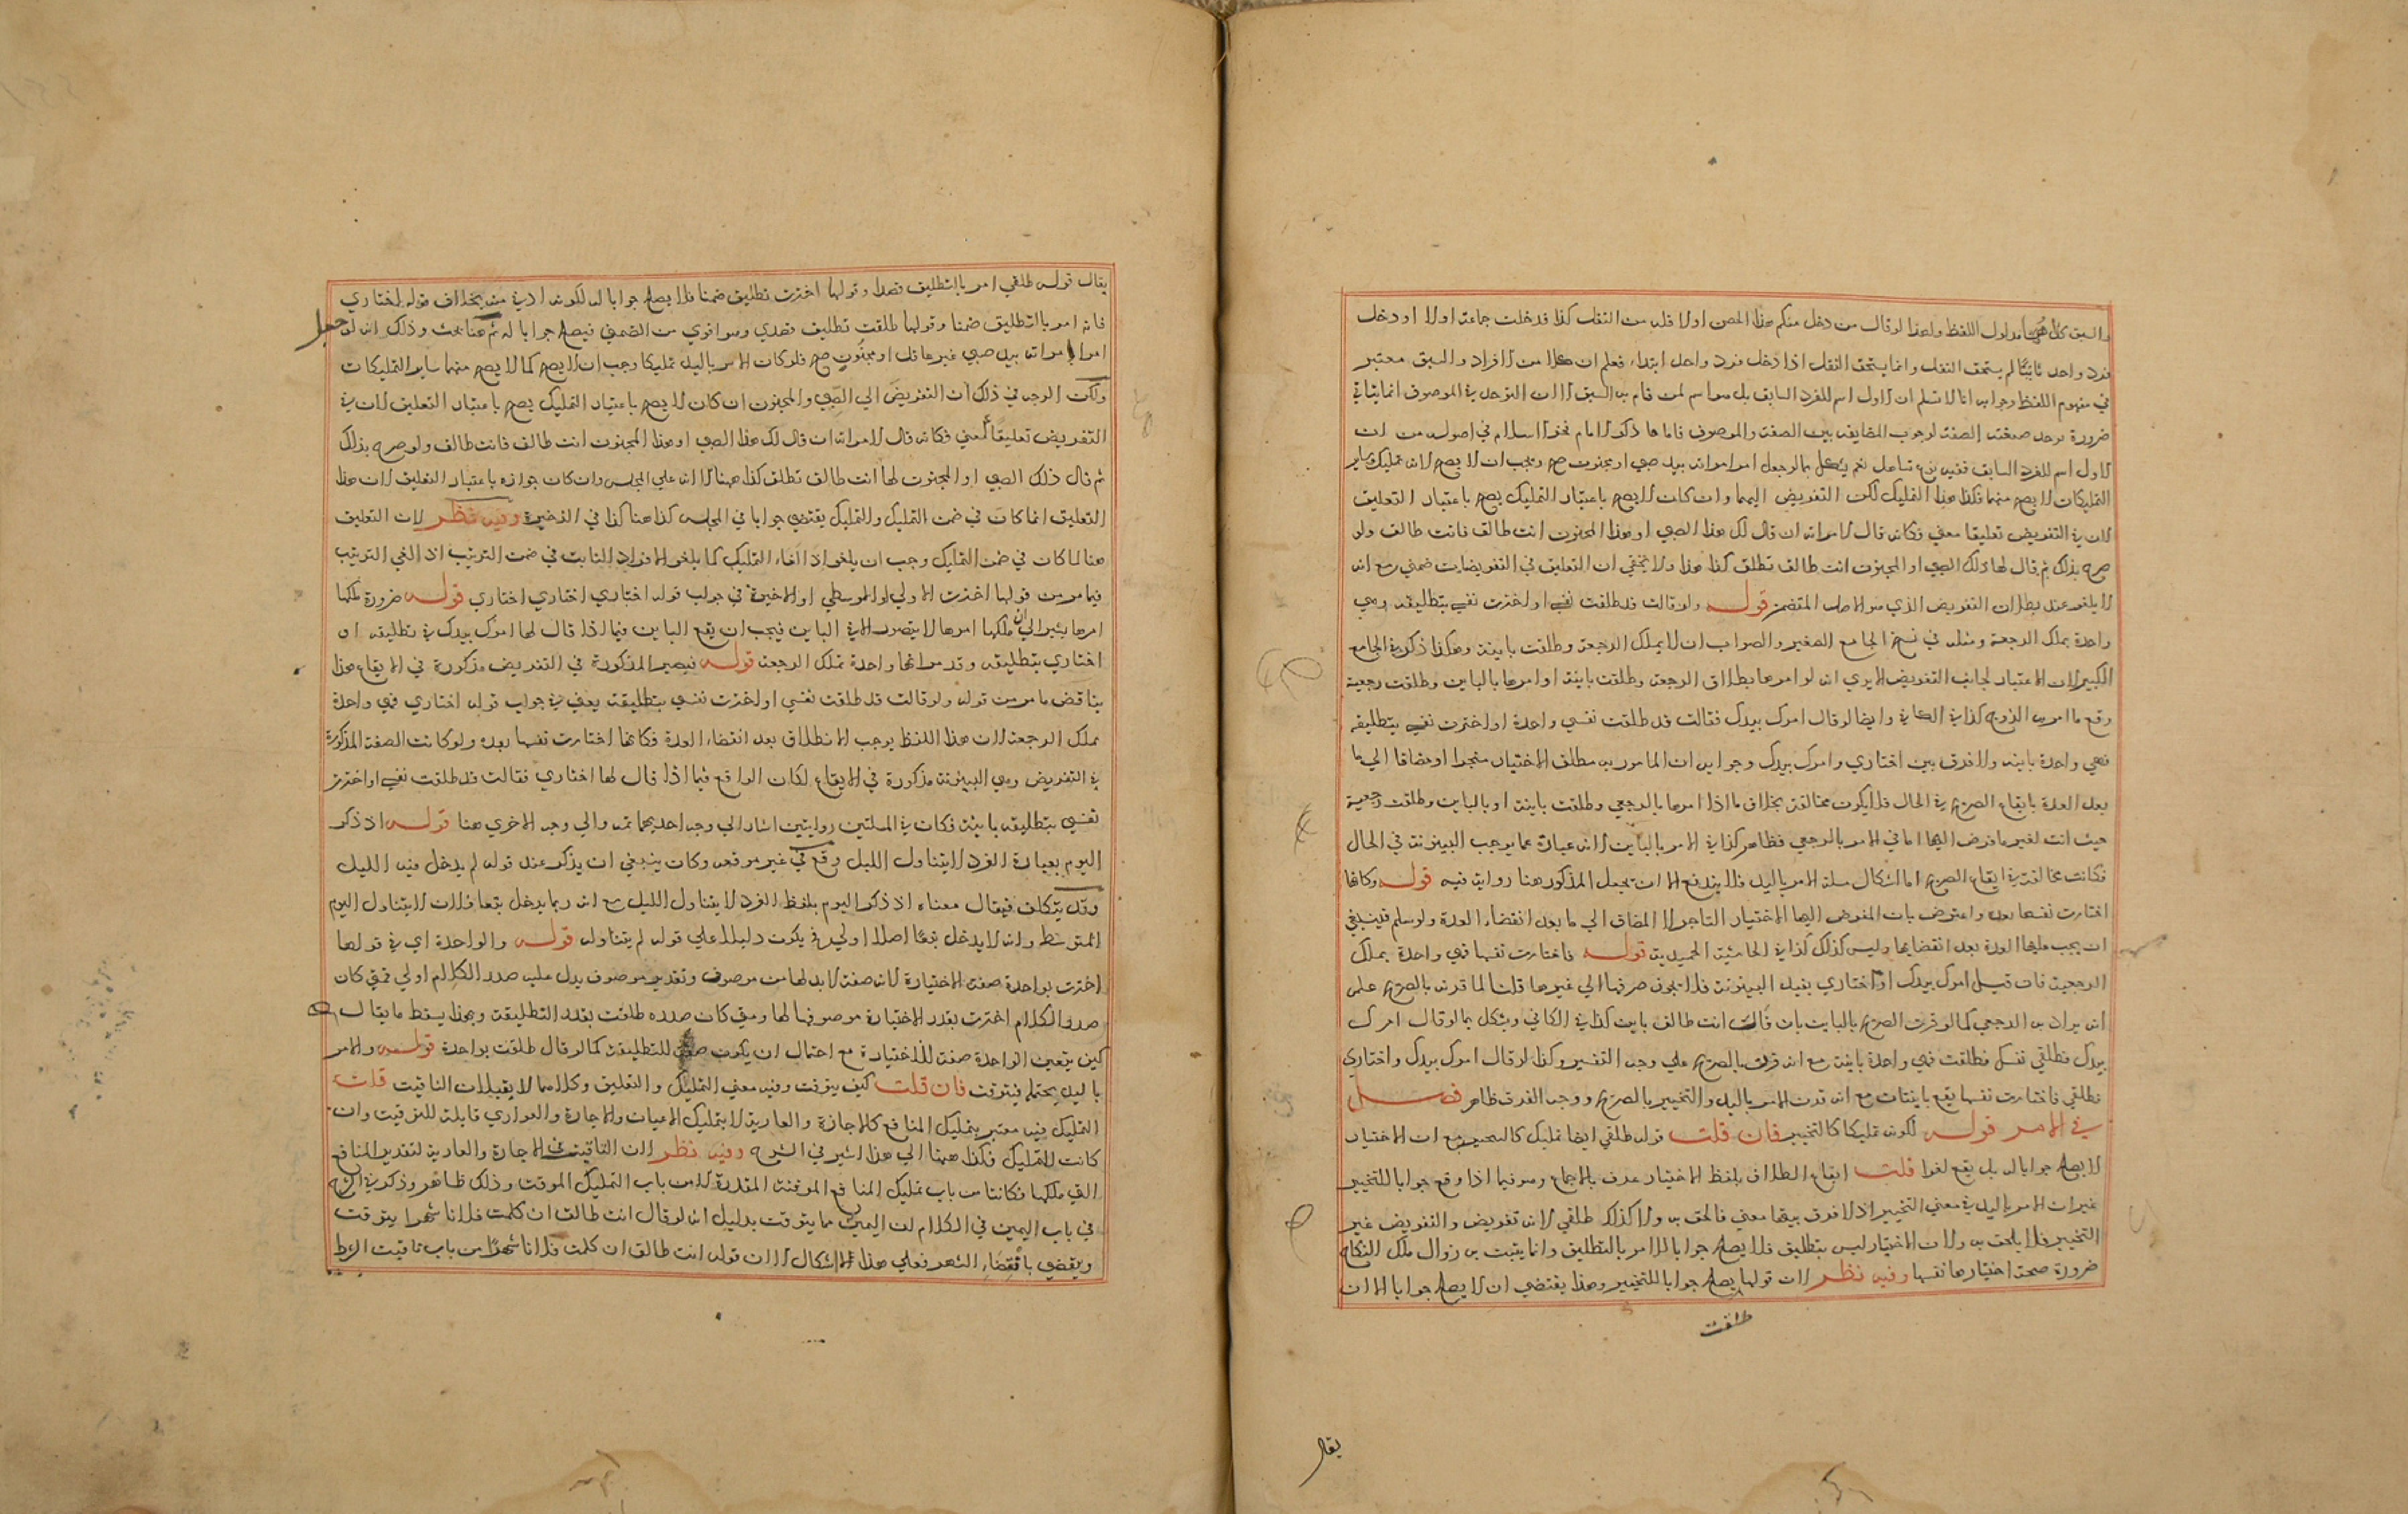 والسبق كلاهما مدلول اللفظ ولهذا لو قال من دخل منكم هذا الحصن اولا فله من النفل كذا فدخلت جماعة اولا او دخل
فرد واحد ثانيًا لم يستحق النفل وانما يستحق النفل اذا دخل فرد واحد ابتداء فعلم ان كلا من الافراد والسبق معتبر
في مفهوم اللفظ وجوابه انا لا نسلم ان الاول اسم للفرد السابق بل هو اسم لمن قام به السبق الا ان التوحد في الموصوف انما يثبت في
ضرورة توحد صيغة الصفة لوجوب المطابقة بين الصفة والموصوف فاما ما ذكر الامام فخر الاسلام في اصوله من ان
الاول اسم للفرد السابق ففيه نوع تساهل نعم يشكل بما لو جعل امر امراته بيد صبي او مجنون صح ويجب ان لا يصح لانه تمليك وساير
التمليكات لا يصح منهما فكذا هذا التمليك لكن التفويض اليهما وان كان لا يصح باعتبار التمليك يصح باعتبار التعليق
لان في التفويض تعليقا معني فكانه قال لامراته ان قال لك هذا الصبي او هذا المجنون انت طالق فانت طالق ولو
صرح بذلك ثم قال لها ذلك الصبي او المجنون انت طالق تطلق كذا هذا ولا يخفي ان التعليق في التفويضات ضمني مع انه
لا يلغو عند بطلان التفويض الذي هو الاصل المتضمن قوله ولو قالت قد طلقت نفسي او اخترت نفسي بتطليقة فهي
واحدة يملك الرجعة ومثله في نسخ الجامع الصغير والصواب ان لا يملك الرجعة وطلقت باينة وهكذا ذكر في الجامع
الكبير لان الاعتبار لجانب التفويض الا يري انه لو امرها بطلاق الرجعة وطلقت باينة او امرها بالباين وطلقت رجعية
وقع ما امر به الزوج كذا في الكفاية وايضا لو قال امرك بيدك فقالت قد طلقت نفسي واحدة او اخترت نفسي بتطليقة
فهي واحدة باينة ولا فرق بين اختاري وامرك بيدك وجوابه ان المامور به مطلق الاختيار منجزا او مضافا الي ما
بعد العدة بايقاع الصريح في الحال فلا يكون مخالفة بخلاف ما اذا امرها بالرجعي وطلقت باينة او بالباين وطلقت رجعية
حيث اتت لغير ما فوض اليها اما في الامر بالرجعي فظاهر كذا في الامر بالباين لانه عبارة عما يوجب البينونة في الحال
فكانت مخالفة في ايقاع الصريح اما اشكال مسلة الامر باليد فلا يندفع الا ان يجعل المذكور هنا رواية فيه قوله وكانها
اختارت نفسها بعد واعترض بان المفوض اليها الاختيار الناجز لا المضاف الي ما بعد انقضاء العدة ولو سلم فينبغي
ان يجب عليها العدة بعد انقضايها وليس كذلك كذا في الحاشية الحميدية قوله فاختارت نفسها فهي واحدة يملك
الرجعية فان قيل امرك بيدك او اختاري يفيد البينونة فلا يجوز صرفها الي غيرها قلنا لما قرنه بالصريح علم
انه يراد به الرجعي كما لو قرن الصريح بالباين بان قال انت طالق باين كذا في الكافي ويشكل بما لو قال امرك
بيدك فطلقي نفسك فطلقت فهي واحدة باينة مع انه قرنه بالصريح علي وجه التفسير وكذا لو قال امرك بيدك واختاري
فطلقي فاختارت نفسها يقع باينتان مع انه قرن الامر باليد والتخيير بالصريح ووجه الفرق ظاهر فصل
في الامر قوله لكونه تمليكا كالتخيير فان قلت قوله طلقي ايضا تمليك كالتخيير مع ان الاختيار
لا يصلح جوابا له بل يقع لغوا قلت ايقاع الطلاق بلفظ الاختيار عرف بالاجماع وهو فيما اذا وقع جوابا للتخيير
غير ان الامر باليد في معني التخيير اذ لا فرق بينهما معني فالحق به ولا كذلك طلقي لانه تفويض والتفويض غير
التخيير فلا يلحق به ولان الاختيار ليس بتطليق فلا يصلح جوابا للامر بالتطليق وانما يثبت به زوال ملك النكاح
ضرورة صحة اختيارها نفسها وفيه نظر لان قولها يصلح جوابا للتخيير وهذا يقتضي ان لا يصلح جوابا الا ان
طلقت
يقال
يقال قوله طلقي امر باالتطليق قصدا وقولها اخترت تطليق ضمنا فلا يصلح جوابا له لكونه ادني منه بخلاف قوله اختاري
فانه امر بالتطليق ضمنا وقولها طلقت تطليق قصدي وهو اقوي من الضمني فيصلح جوابا له ثم هنا بحث وذلك انه لو جعل
امر امراته بيد صبي غير عاقل او مجنون صح فلو كان الامر باليد تمليكا وجب ان لا يصح كما لا يصح منهما ساير التمليكات
ولكن الوجه في ذلك ان التفويض الي الصبي والمجنون ان كان لا يصح باعتبار التمليك يصح باعتبار التعليق لان في
التفويض تعليقا معني فكانه قال لامراته ان قال لك هذا الصبي او هذا المجنون انت طالق فانت طالق ولو صرح بذلك
ثم قال ذلك الصبي او المجنون لها انت طالق تطلق كذا ههنا الا انه علي المجلس وان كان جوازه باعتبار التعليق لان هذا
التعليق انما كان في ضمن التمليك والتمليك يقتضي جوابا في المجلس كذا هنا كذا في الذخيرة وفيه نظر لان التعليق
هنا لما كان في ضمن التمليك وجب ان يلغو اذا الغاء التمليك كما يلغو الافراد الثابت في ضمن الترتيب اذ الغي الترتيب
فيما مر من قولها اخترت الاولي او الوسطي او الاخيرة في جواب قوله اختاري اختاري اختاري قوله ضرورة ملكها
امرها يشير الي ان ملكها امرها لا يتصور الا في الباين فيجب ان يقع الباين فيما اذا قال لها امرك بيدك في تطليقة او
اختاري بتطليقة وقد مر انها واحدة تملك الرجعة قوله فيصير المذكورة في التفويض مذكورة في الايقاع هذا
يناقض ما مر من قوله ولو قالت قد طلقت نفسي او اخترت نفسي بتطليقة يعني في جواب قوله اختاري فهي واحدة
تملك الرجعة لان هذا اللفظ يوجب الانطلاق بعد انقضاء العدة فكانها اختارت نفسها بعده ولو كانت الصفة المذكورة
في التفويض وهي البينونة مذكورة في الايقاع لكان الواقع فيما اذا قال لها اختاري فقالت قد طلقت نفسي او اخترت
نفسي بتطليقة باينة فكان في المسلتين روايتين اشار الي وجه احديهما ثمه والي وجه الاخري هنا قوله اذ ذكر
اليوم بعبارة الفرد لا يتناول الليل وقع في غير موقعه وكان ينبغي ان يذكر عند قوله لم يدخل فيه الليل
وقد يتكلف فيقال معناه اذ ذكر اليوم بلفظ الفرد لا يتناول الليل مع انه ربما يدخل تبعا فلان لا يتناول اليوم
المتوسط وانه لا يدخل تبعًا اصلا اولي فيكون دليلا علي قوله لم يتناوله قوله والواحدة اي في قولها
اخترت بواحدة صفة الاختيارة لانه صفة لا بد لها من موصوف وتقدير موصوف يدل عليه صدر الكلام اولي فمتي كان
صدر الكلام اخترت يقدر الاختيارة موصوفها لها ومتي كان صدره طلقت يقدر التطليقة وبهذا يسقط ما يقال
كيف يتعين الواحدة صفة للاختيارة مع احتمال ان يكون صفة للتطليقة كما لو قال طلقت بواحدة قوله والامر
باليد يحتمله فيتوقت فان قلت كيف يتوقت وفيه معني التمليك والتعليق وكلاهما لا يقبلان التاقيت قلت
التمليك فيه معتبر بتمليك المنافع كالاجارة والعارية لا بتمليك الاعيان والاجارة والعواري قابلة للتوقيت وان
كانت للتمليك فكذا ههنا الي هذا اشير في الشرح وفيه نظر لان التاقيت في الاجارة والعارية لتقدير المنافع
التي ملكها فكانتا من باب تمليك المنافع الموقتة المقدرة لا من باب التمليك الموقت وذلك ظاهر وذكر في الشرح
في باب اليمين في الكلام ان اليمين مما يتوقت بدليل انه لو قال انت طالق ان كلمت فلانا شهرا يتوقت
وينقضي بانقضاء الشهر فعلي هذا لا اشكال الا ان قوله انت طالق ان كلمت فلانا شهرًا من باب تاقيت الشرط